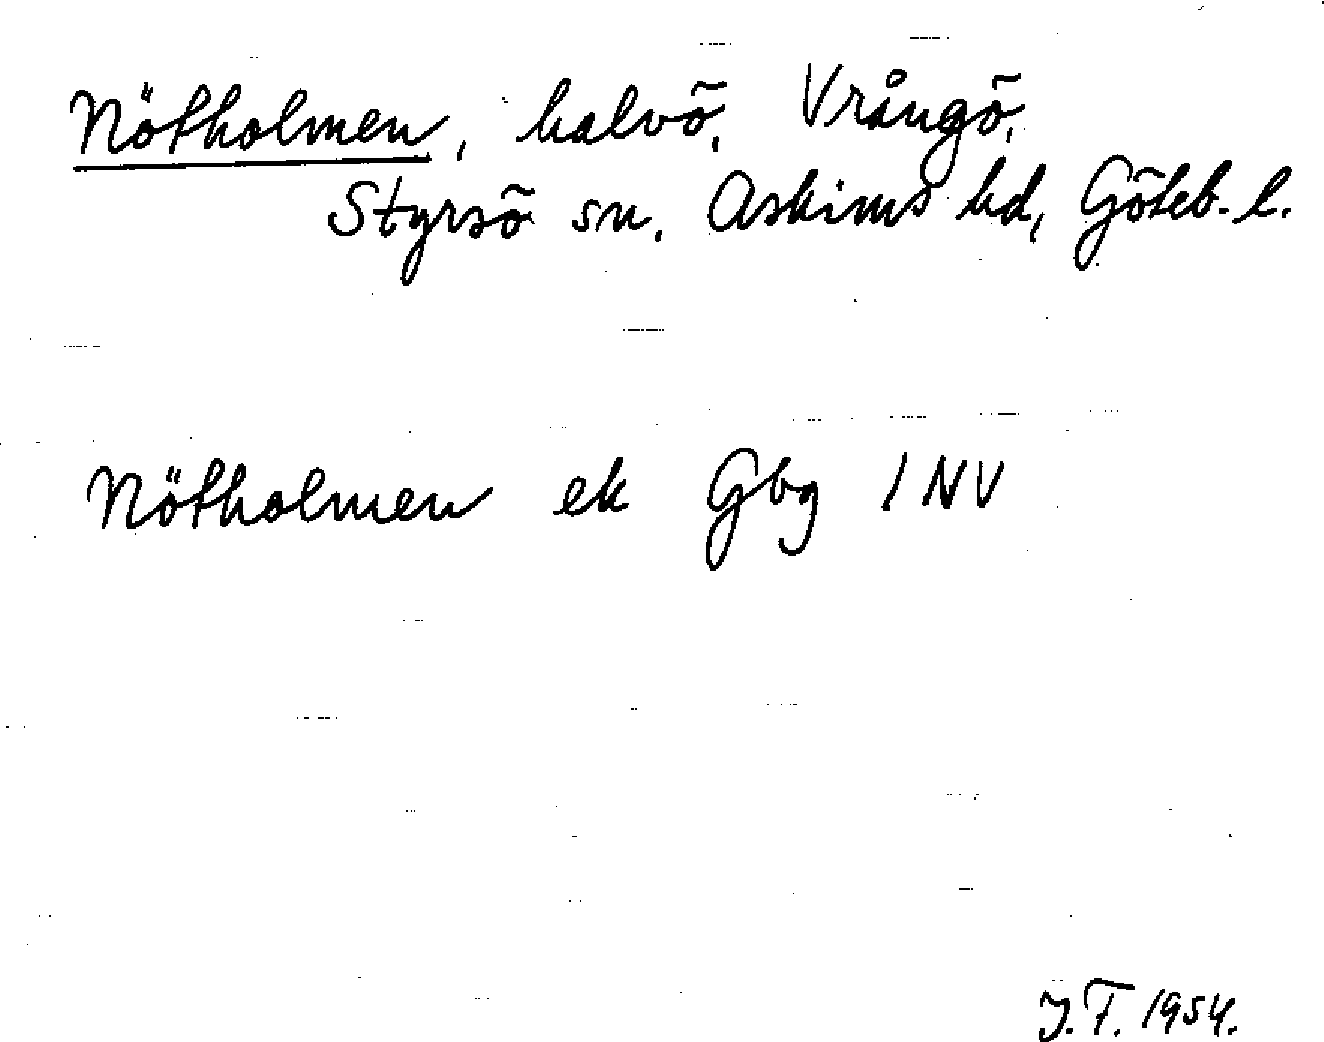 Nötholmen, halvö, Vrångö,
Styrsö sn, Askims hd, Göteb. l.
Nötholmen ek Gbg 1 NV
J.F. 1954.